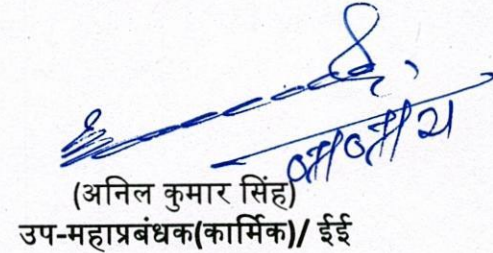 (अनिल कुमार सिंह)
उप-महाप्रबंधक(कार्मिक)/ ईई